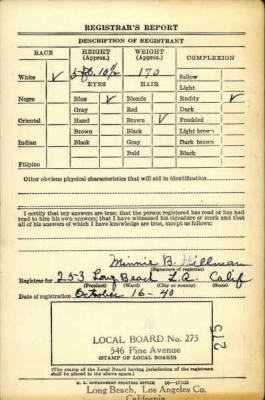 REGISTRAR'S REPORT
DESCRIPTION OF REGISTRANT
RACE HEIGHT (Approx.) WEIGHT (Approx.) COMPLEXION
White ✓ 5 ft. 10½ 170 Sallow
EYES HAIR Light
Negro Blue ✓ Blonde Ruddy ✓
Gray Red Dark
Oriental Hazel Brown ✓ Freckled
Brown Black Light brown
Indian Black Gray Dark brown
Bald Black
Filipino
Other obvious physical characteristics that will aid in identification
I certify that my answers are true; that the person registered has read or has had
read to him his own answers; that I have witnessed his signature or mark and that
all of his answers of which I have knowledge are true, except as follows:
Minnie B. Hillman
(Signature of registrar)
Registrar for 253 Long Beach L.A. Calif
(Precinct) (Ward) (City or county) (State)
Date of registration October 16-40
LOCAL BOARD No. 275
546 Pine Avenue
(STAMP OF LOCAL BOARD)
275
(The stamp of the Local Board having jurisdiction of the registrant
shall be placed in the above space.)
U. S. GOVERNMENT PRINTING OFFICE 16—17105
Long Beach, Los Angeles Co.
California